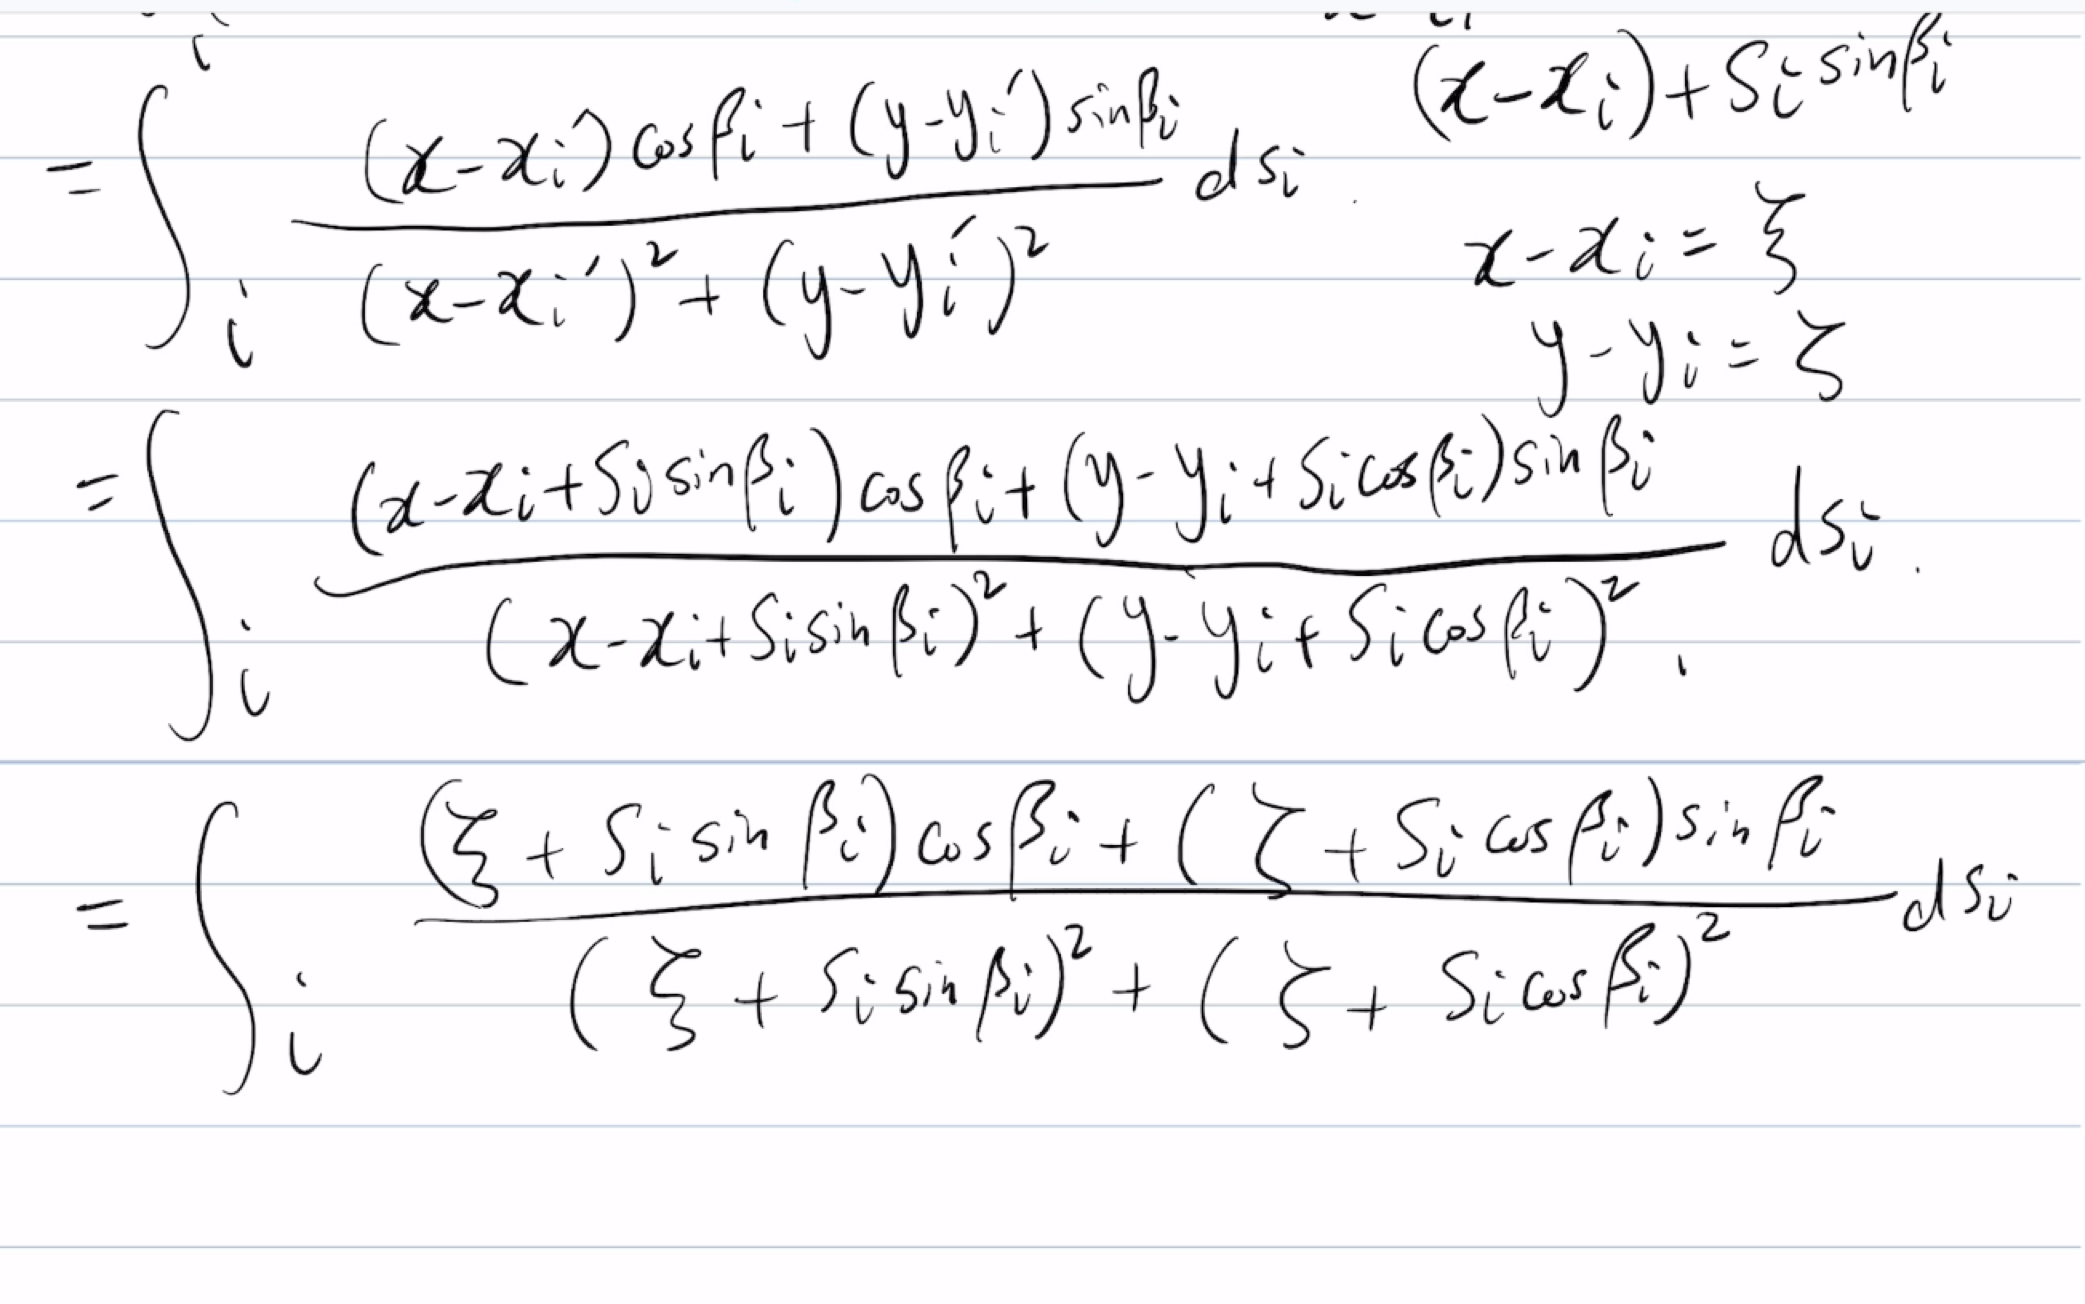 = ∫_i ((x-x_i')cosβ_i + (y-y_i')sinβ_i) / ((x-x_i')² + (y-y_i')²) ds_i.
(x-x_i)+S_i sinβ_i
x-x_i = ξ
y-y_i = ζ
= ∫_i ((x-x_i+S_i sinβ_i)cosβ_i + (y-y_i+S_i cosβ_i)sinβ_i) / ((x-x_i+S_i sinβ_i)² + (y-y_i+S_i cosβ_i)²) ds_i.
= ∫_i ((ξ+S_i sinβ_i)cosβ_i + (ζ+S_i cosβ_i)sinβ_i) / ((ξ+S_i sinβ_i)² + (ζ+S_i cosβ_i)²) ds_i